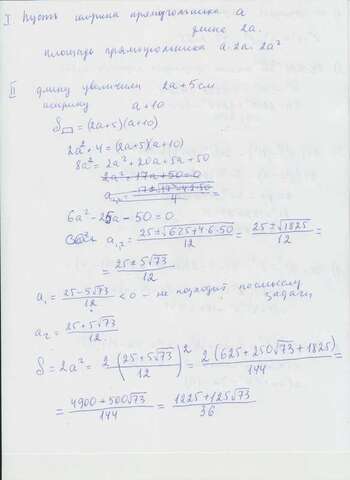 I Пусть ширина прямоугольника a
длина 2a.
площадь прямоугольника a·2a=2a²
II длину увеличили 2a+5см
ширину a+10
S▭ = (2a+5)(a+10)
2a²·4=(2a+5)(a+10)
8a²=2a²+20a+5a+50
2a²+17a+50=0
6a²-25a-50=0
a₁,₂ = (25±√(625+4·6·50))/12 = (25±√1825)/12 =
= (25±5√73)/12
a₁ = (25-5√73)/12 <0 - не подходит по смыслу
задачи
a₂ = (25+5√73)/12
S=2a² = 2((25+5√73)/12)² = 2(625+250√73+1825)/144 =
= (4900+500√73)/144 = (1225+125√73)/36